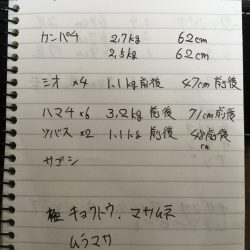 カンパチ 2.7kg 62cm
2.5kg 62cm
ミオ ×4 1.1kg前後 47cm前後
ハマチ×6 3.2kg前後 71cm前後
ツバス×2 1.1kg前後 48cm前後
サゴシ
極 キョウトウ、マサムネ
ムラマサ